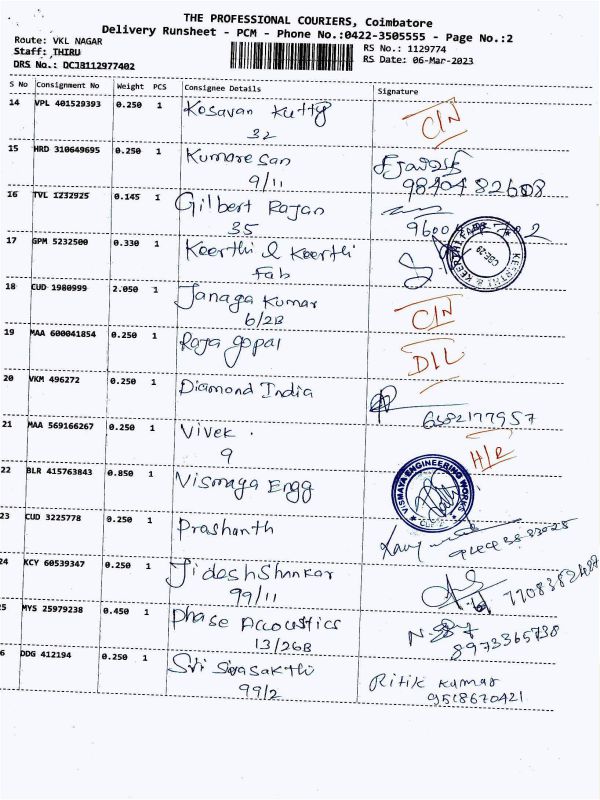 THE PROFESSIONAL COURIERS, Coimbatore
Delivery Runsheet - PCM - Phone No.:0422-3505555 - Page No.:2
Route: VKL NAGAR
RS No.: 1129774
Staff: THIRU
RS Date: 06-Mar-2023
DRS No.: DCJB112977402
S No Consignment No Weight PCS Consignee Details Signature
14 VPL 401529393 0.250 1 Kosavan Kutty
32
C/N
15 HRD 310649695 0.250 1 Kumaresan
9/11
98404 82608
16 TVL 1232925 0.145 1 Gilbert Rajan
35
9600
17 GPM 5232500 0.330 1 Keerthi & Keerthi
Fab
KEERTHI & KEERTHI FAB
CBE-29
18 CUD 1980999 2.050 1 Janaga Kumar
6/2B
C/N
19 MAA 600041854 0.250 1 Raja gopal
D/L
20 VKM 496272 0.250 1 Diamond India
6382177957
21 MAA 569166267 0.250 1 Vivek .
9
H/R
22 BLR 415763843 0.850 1 Vismaya Engg
VISMAYA ENGINEERING WORKS
23 CUD 3225778 0.250 1 Prashanth
24 KCY 60539347 0.250 1 Jidesh Shankar
99/11
7708382487
25 MYS 25979238 0.450 1 Phase Accoustics
13/26B
8973365738
26 DDG 412194 0.250 1 Sri Sivasakthi
99/2
Ritik Kumar
9518670421